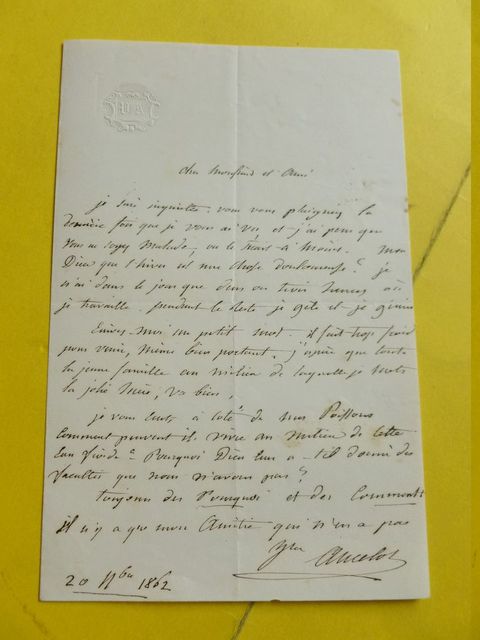 cher Monsieur et Ami
je suis inquiette. vous vous plaigniez la
dernière fois que je vous ai vu et j'ai peur que
vous ne soyez malade, ou le
Dieu que l'hiver est une chose douloureuse ? je
n'ai dans le jour que deux ou trois heures où
je travaille. pendant le reste je gèle et je gémis
Ecrivez-moi un petit mot. il fait trop froid
pour venir, même bien portant. j'espère que toute
la jeune famille au milieu de laquelle je mets
la jolie mère, va bien,
je vous écris à côté de mes Poissons
comment peuvent ils vivre au milieu de cette
Eau froide ? Pourquoi Dieu leur a-t-il donné des
facultés que nous n'avons pas ?
toujours des Pourquoi et des Comments
il n'y a que mon Amitié qui n'en a pas
Ancelot
20 9bre 1862